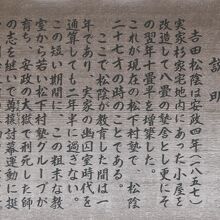 説明
吉田松陰は安政四年(一八五七)
実家杉家宅地内にあった小屋を
改造して八畳の塾舎とし更にそ
の翌年十畳半を増築した。
これが現在の松下村塾で 松陰
二十七才の時のことである。
ここで松陰が教育した間は一
年であり、実家の幽囚室時代を
通算しても二年半に過ぎない。
この短い期間に、この粗末な教
室から若い松下村塾グループが
育ち、安政の大獄で刑死した師
の志を継いで尊攘討幕運動に挺